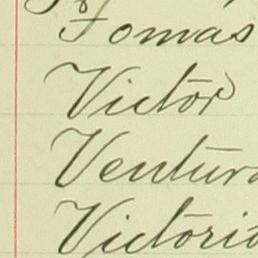 Tomas
Victor
Ventura
Victoria